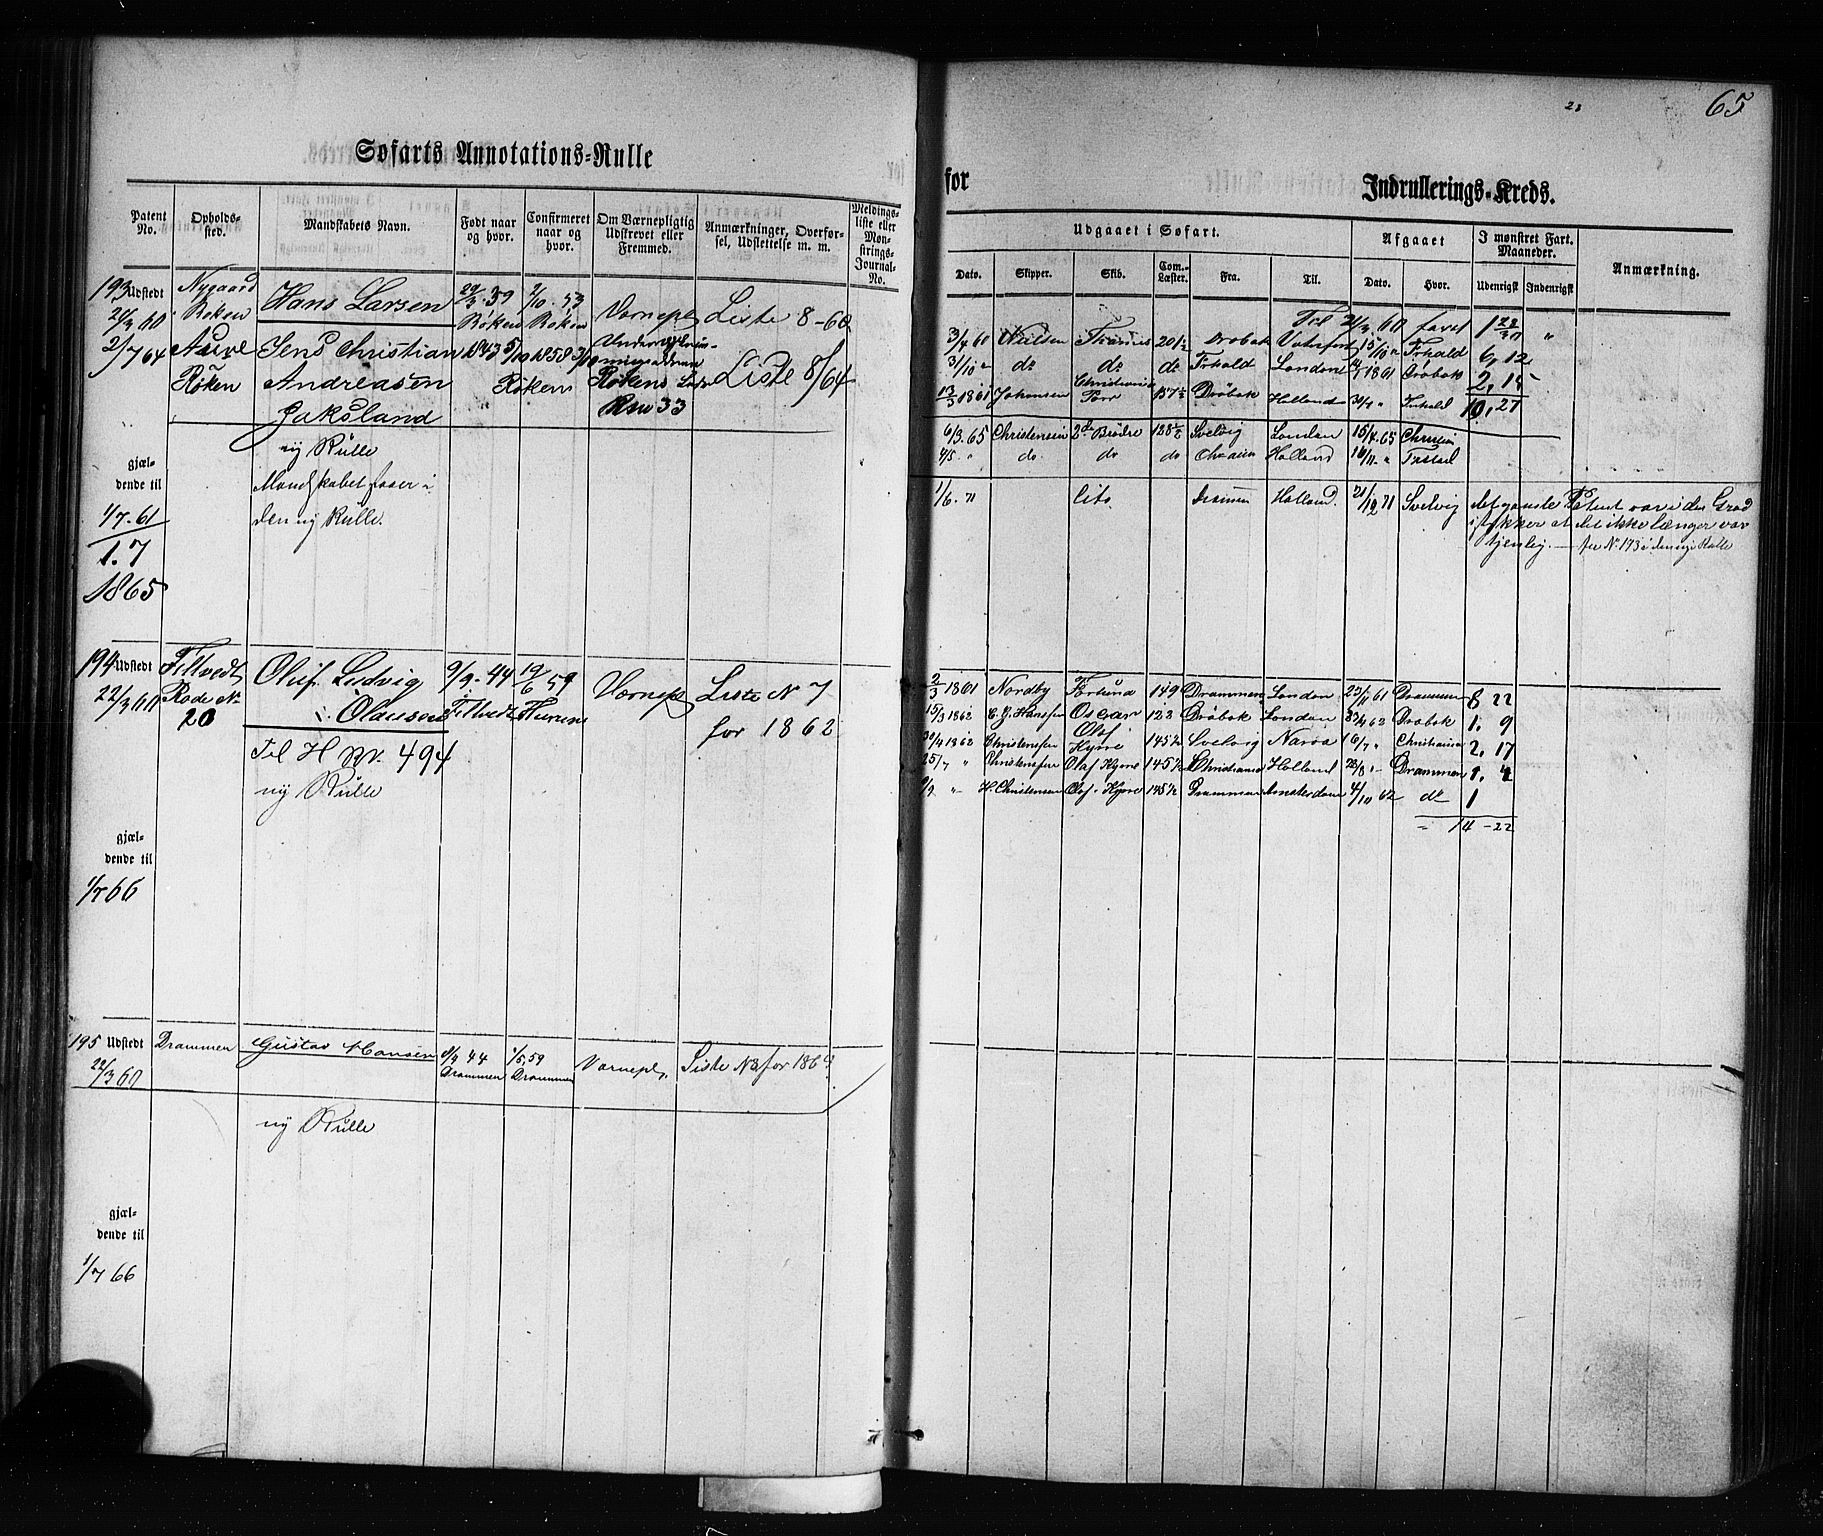 65
Søfarts Annotations-Rulle
for
Indrullerings-Kreds.
Patent No.
Opholds-sted.
Mandskabets Navn.
Født naar og hvor.
Confirmeret naar og hvor.
Om Værnepligtig Udskrevet eller Fremmed.
Anmærkninger, Overførsel, Udslettelse m. m.
Meldings-liste eller Mønstrings-Journal-No.
Udgaaet i Søfart.
Afgaaet
I mønstret Fart. Maaneder.
Anmærkning.
Dato. Skipper. Skib. Com.-Læster. Fra. Til. Dato. Hvor. Udenrigsk Indenrigsk
193 Udstedt Nygaard Røken Hans Larsen 39 Røken 2/10 53 Røken Værnepl Liste 8-60
2/7 64 Røken Jens Christian Andreasen Jaksland 1843 5/10 1858 Røken Liste 8/64
ny Rulle
Mandskabet faaer i
den ny Rulle.
gjæl-
dende til
1/7-61
1.7
1865
Til 60 faret 1
3/4 60 20½ Drøbak 6, 12
3/10 " do do do London 1861 Drøbak 2, 15
13/3 1861 Johansen Christiania 157½ Drøbak Holland 30/7 " 10, 27
6/3 65 Christensen 2de Brødre 128½ Svelvig London 15/4 65
4/5 " do. do do Holland
1/6. 71 Drammen Holland. 21/12 71 Svelvig det gamle Patent var i den Grad
i stykker at det ikke længer var
tjenlig. — see No 193 i den nye Rulle
194 Udstedt 22/3 60 Filtvedt Rode No 20 Oluf Ludvig Olaussen 9/9-44 Filtvedt 19/6 59 Hurum Værnepl Liste No 7 for 1862
Til H No. 494
ny Rulle
gjæl-
dende til
1/7 66
2/3 1861 Nordby Fortuna 149 Drammen London 61 Drammen 8 22
15/3 1862 Hanssen Oscar 123 Drøbak London 62 Drøbak 1. 9
30/4 1862 Christensen Olaf Kyrre 145½ Svelvig Narva 16/7 " Christiania 2, 17
25/7 " Christensen Olaf Kyrre 145½ Christiania Holland Drammen 1. 4
9/9 " H. Christensen Olaf Kyrre 145½ Drammen Amsterdam 4/10 62 do 1
" 14 - 22
195 Udstedt 22/3 60 Drammen Gustav Hansen 44 Drammen 59 Drammen Værnepl. Liste No 3 for 186
ny Rulle
gjæl-
dende til
1/7 66